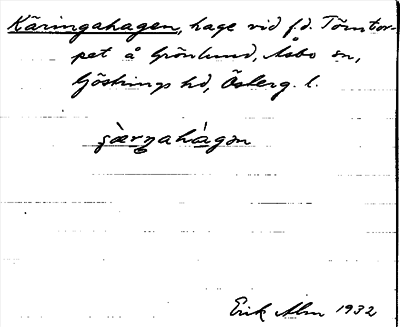 Käringahagen, hage vid f.d. Tomtor-
pet å Grönlund, Åsbo sn,
Göstrings hd, Österg. l.
Erik Alm 1932